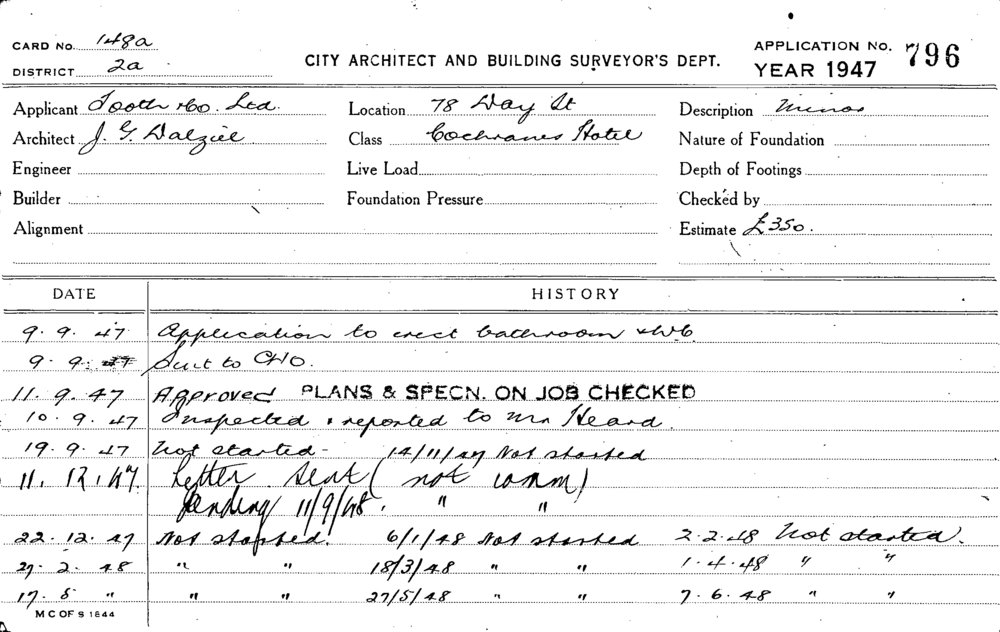 CARD No. 148a
DISTRICT 2a
CITY ARCHITECT AND BUILDING SURVEYOR'S DEPT.
APPLICATION No. 796
YEAR 1947
Applicant Tooth & Co. Ltd. Location 78 Day St Description Minor
Architect J. G. Dalziel Class Cochranes Hotel Nature of Foundation
Engineer Live Load Depth of Footings
Builder Foundation Pressure Checked by
Alignment Estimate £350.
DATE HISTORY
9. 9. 47 Application to erect bathroom & W.C.
9. 9. 47 Sent to CHO.
11. 9. 47 Approved PLANS & SPECN. ON JOB CHECKED
10. 9. 47 Inspected & reported to Mr Heard.
19. 9. 47 Not started - 14/11/47 Not started
11. 12. 47 Letter sent ( not comm )
Pending 11/9/48. " "
22. 12. 47 Not started. 6/1/48 Not started 2.2.48 Not started.
27. 2. 48 " " 18/3/48 " " 1.4.48 " "
17. 5 " " " 27/5/48 " " 7.6.48 " "
M C OF S 1844